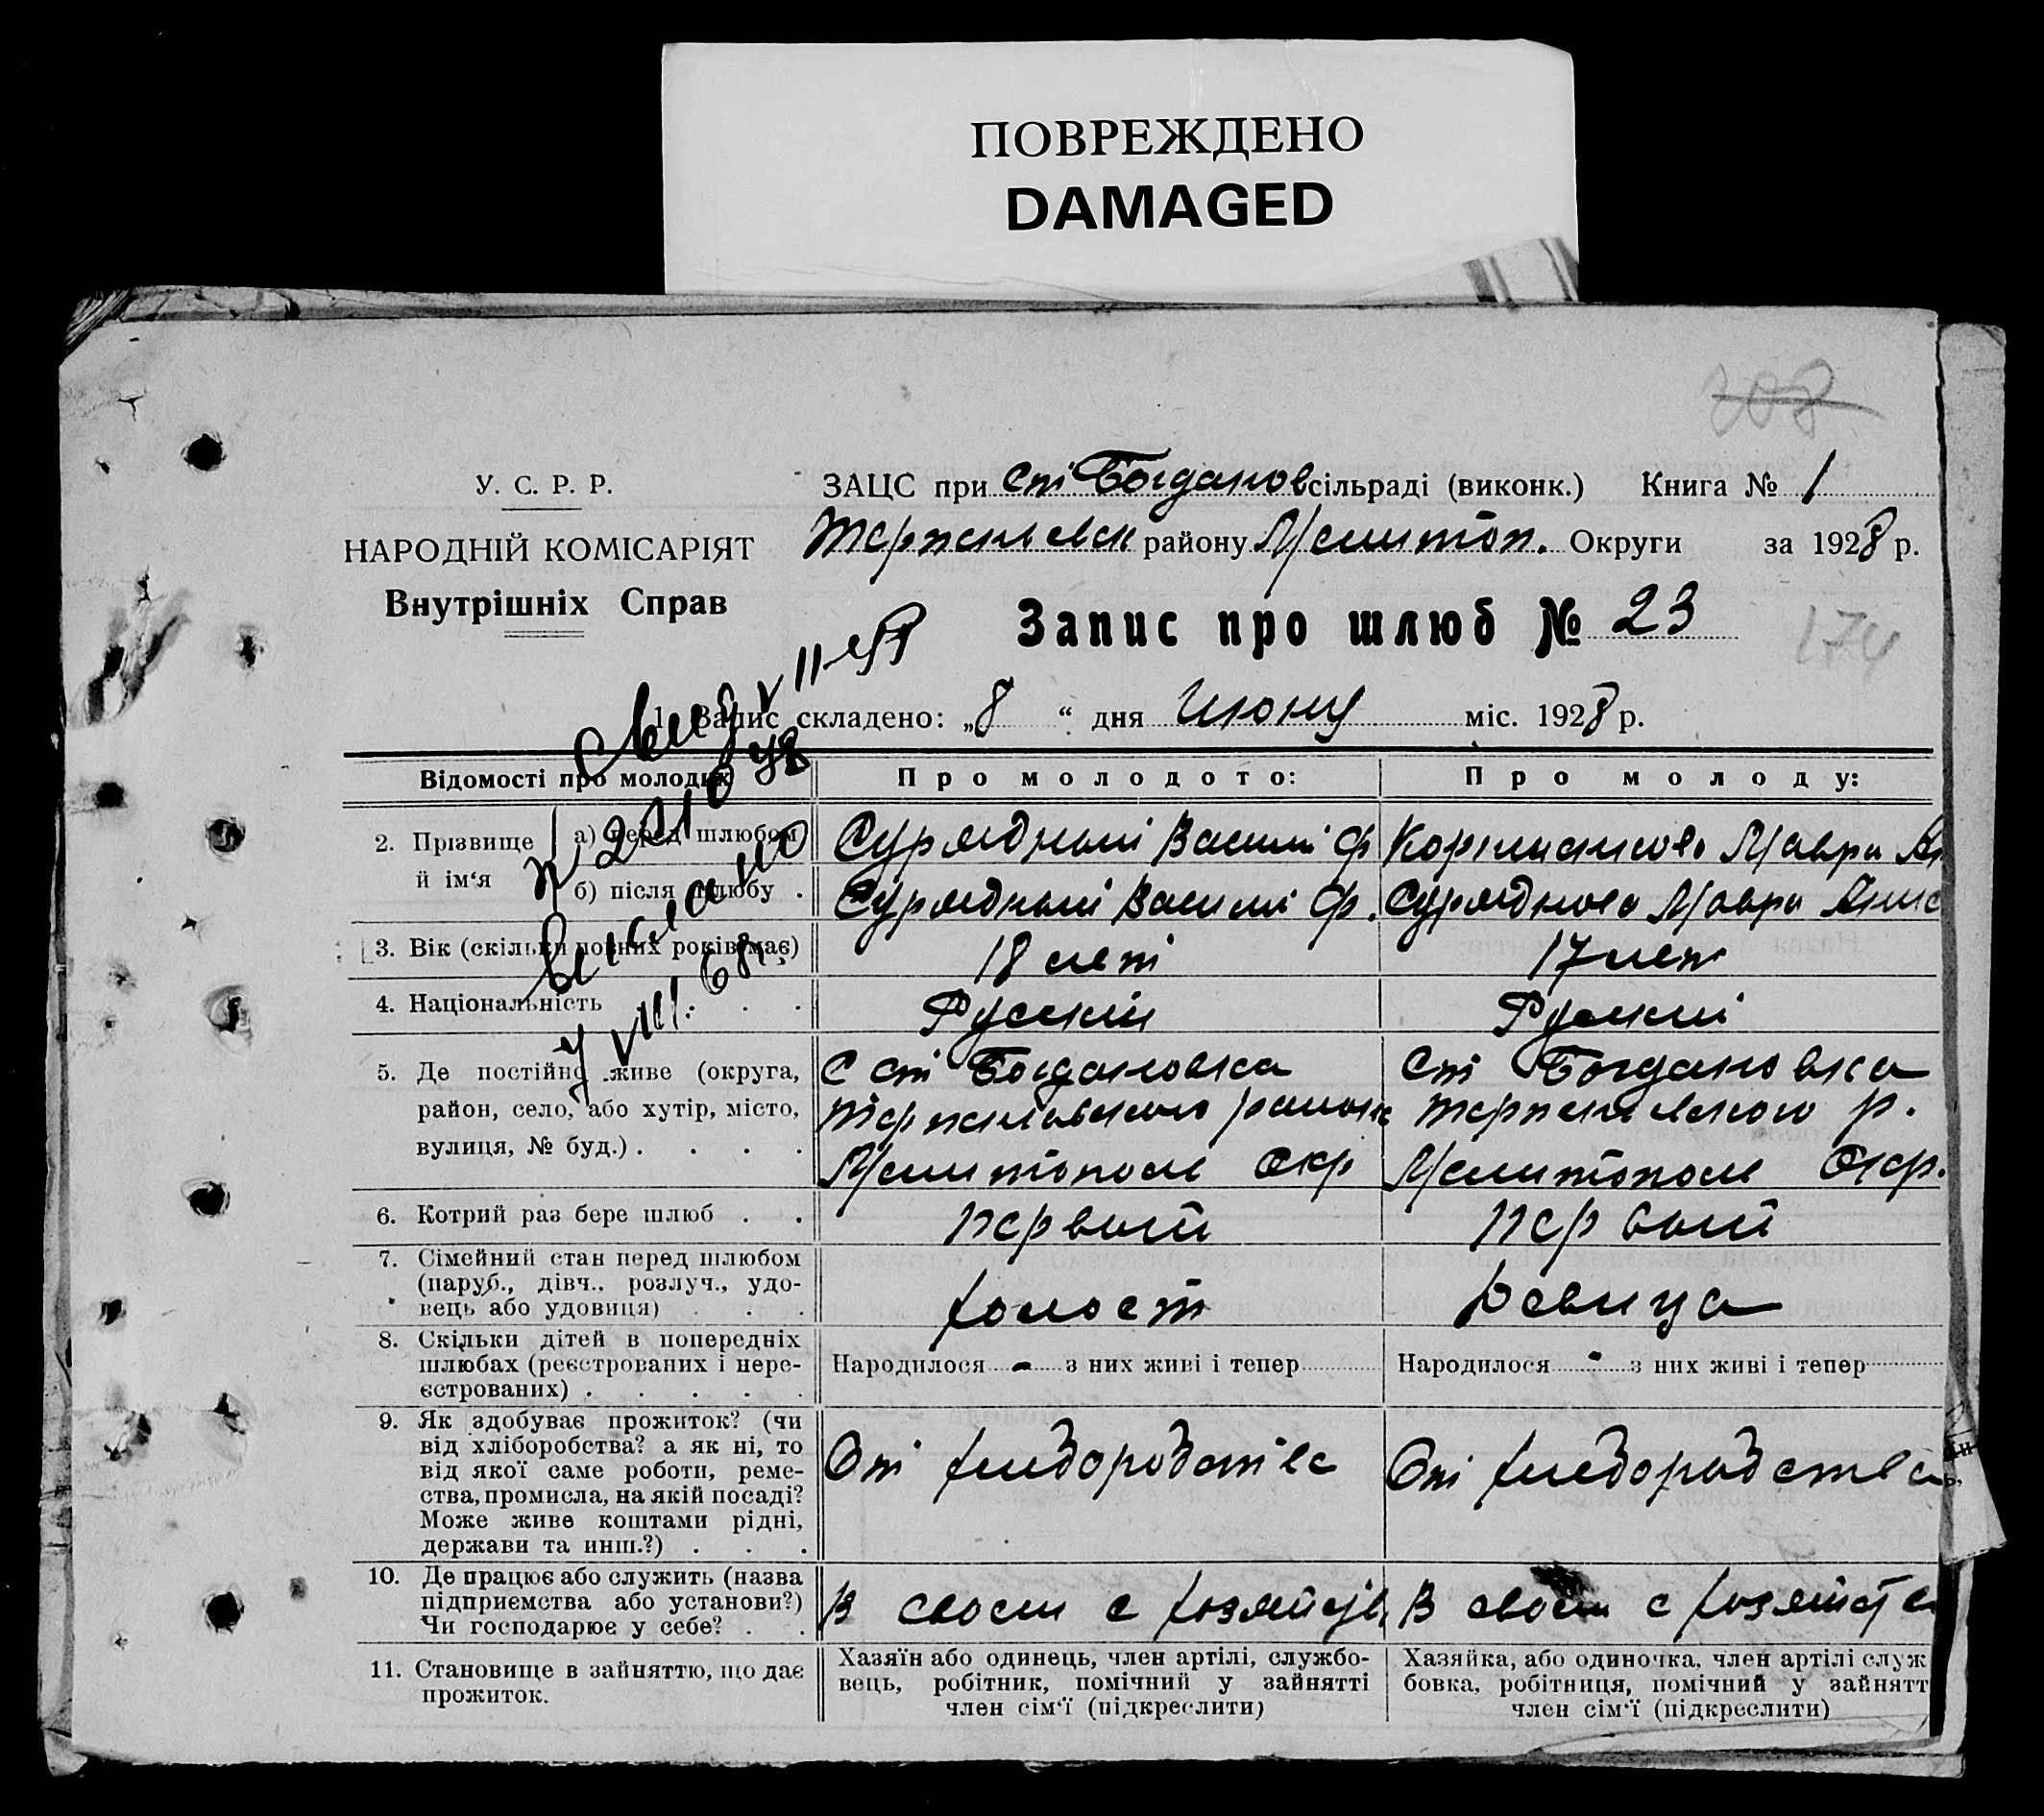 ПОВРЕЖДЕНО
DAMAGED
308
У. С. Р. Р.
НАРОДНІЙ КОМІСАРІЯТ
Внутрішніх Справ
ЗАЦС при Ст Богданов сільраді (виконк.) Книга № 1
Терпеньевск району Мелитоп. Округи за 1928 р.
Запис про шлюб № 23
174
1. Запис складено: „8“ дня Июню міс. 1928 р.
Відомості про молодих
Про молодого:
Про молоду:
2. Прізвище й ім‘я
а) перед шлюбом
Василий Ф
Мавра
б) після шлюбу .
Василий Ф.
Мавра Анис
3. Вік (скільки повних років має)
18 лет
17 лет
4. Національність . . .
Русский
Руский
5. Де постійно живе (округа,
район, село, або хутір, місто,
вулиця, № буд.) . . . .
С ст Богдановка
Терпеньевского района
Мелитополь Окр
Ст Богдановка
Терпеньевского р.
Мелитополь Окр.
6. Котрий раз бере шлюб . .
первый
первый
7. Сімейний стан перед шлюбом
(паруб., дівч., розлуч., удо-
вець або удовиця) . . .
холост
девица
8. Скільки дітей в попередніх
шлюбах (реєстрованих і нере-
єстрованих) . . . . .
Народилося - з них живі і тепер
Народилося - з них живі і тепер
9. Як здобуває прожиток? (чи
від хліборобства? а як ні, то
від якої саме роботи, реме-
ства, промисла, на якій посаді?
Може живе коштами рідні,
держави та инш.?) . . .
От хлебородства
От хлебородства
10. Де працює або служить (назва
підприємства або установи?)
Чи господарює у себе? . .
В своем с хозяйств
В своем с хозяйств
11. Становище в зайняттю, що дає
прожиток.
Хазяїн або одинець, член артілі, службо-
вець, робітник, помічний у зайнятті
член сім‘ї (підкреслити)
Хазяйка, або одиночка, член артілі служ
бовка, робітниця, помічний у зайнятт
член сім‘ї (підкреслити)